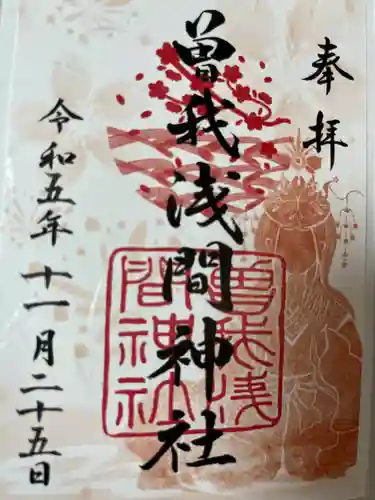 奉拝
曽我浅間神社
曽我浅間神社
令和五年十一月二十五日